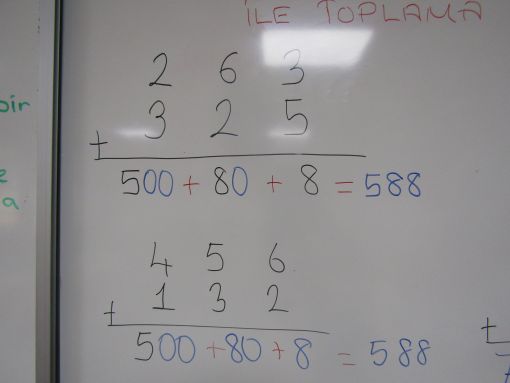 İLE TOPLAMA
2 6 3
3 2 5
+
500 + 80 + 8 = 588
4 5 6
1 3 2
+
500 + 80 + 8 = 588
bir
a
+